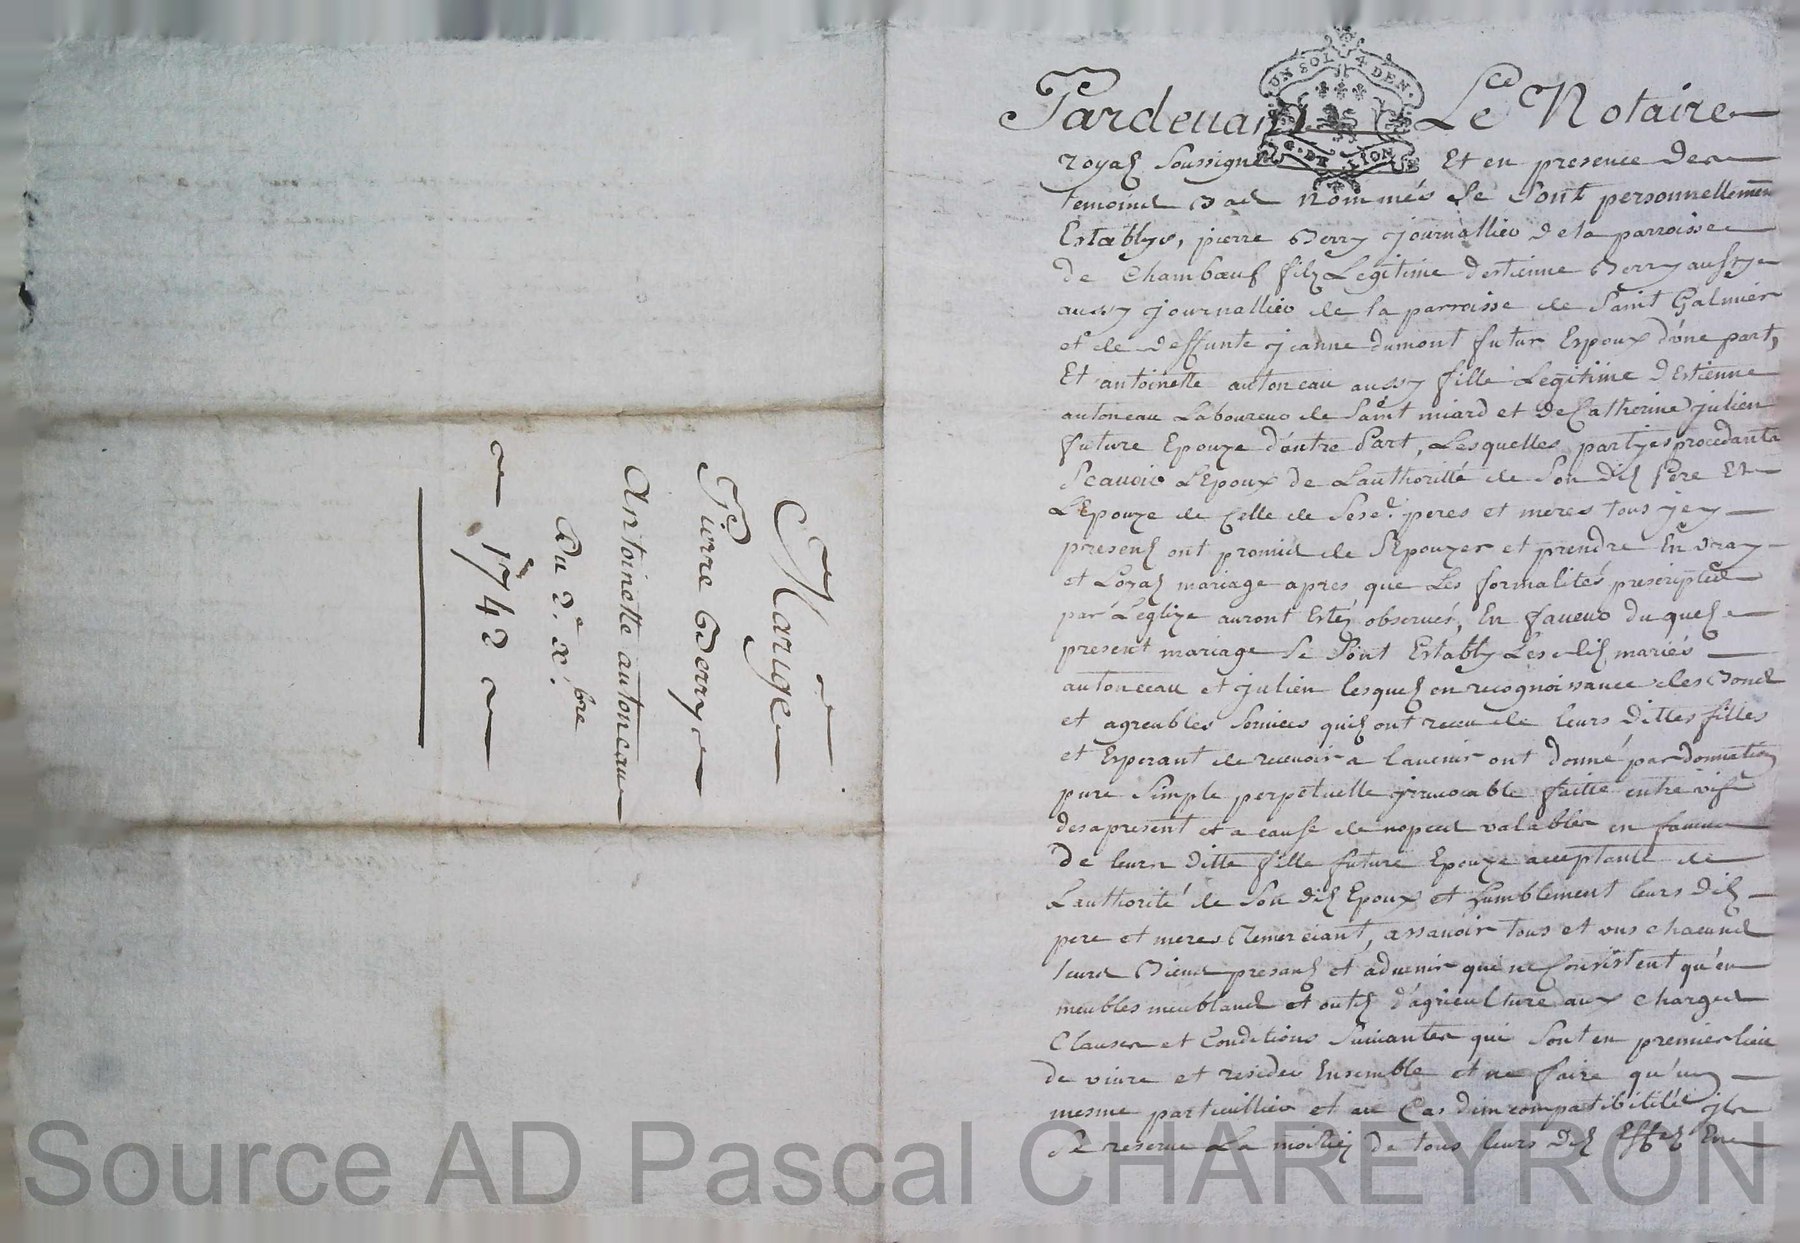 Mariage
Pierre Berry
Antoinette autoneau
Du 2e xbre
1742
UN SOL 4 DEN.
G. DE LION
Pardeuant Le Notaire
royal soussigné Et en presence des
temoins bas nommés se sont personnellement
Establys, pierre Berry journallier de la parroisse
de Chambœuf fils Legitime destienne Berry aussy
aussy journallier de la parroisse de Saint Galmier
et de deffunte jeanne dumont futur Espoux d'une part,
Et antoinette autoneau aussy fille Legitime d'Estienne
autoneau Laboureur de Saint miard et de Catherine julien
future Epouze d'autre Part, Lesquelles partyes procedants
Scauoir L'Epoux de L'authorité de Son dit Pere Et
L'Epouze de Celle de Sesd. peres et meres tous jcy
presents ont promis de S'Epouzer et prendre En vray
et Loyal mariage apres que Les formalités prescriptes
par L'eglize auront Estés obserués, En faueur du quel
present mariage Se Sont Estably Lesdits mariés
autonceau et julien lesquels en recognoissance des bons
et agreables Seruices quils ont receu de leurs dittes filles
et Esperant de receuoir a l'auenir ont donné par donnation
pure Simple perpetuelle jrreuocable faitte entre vifs
des a present et a cause de nopces valables en faueur
de leurs ditte fille future Epouze acceptante de
L'authorité de Son dit Epoux et humblement leurs dits
pere et meres Remerciant, assauoir tous et uns chacuns
leurs Biens presants et aduenir qui ne Consistent qu'en
meubles meublans et outils d'agriculture aux charges
Clauses et Conditions Suiuantes qui Sont en premier lieu
de viure et resider Ensemble et ne faire qu'un
mesme particullier et au Cas dincompatibilité jls
Se reserue La moitiéj de tous leurs dits Effets En
Source AD Pascal CHAREYRON